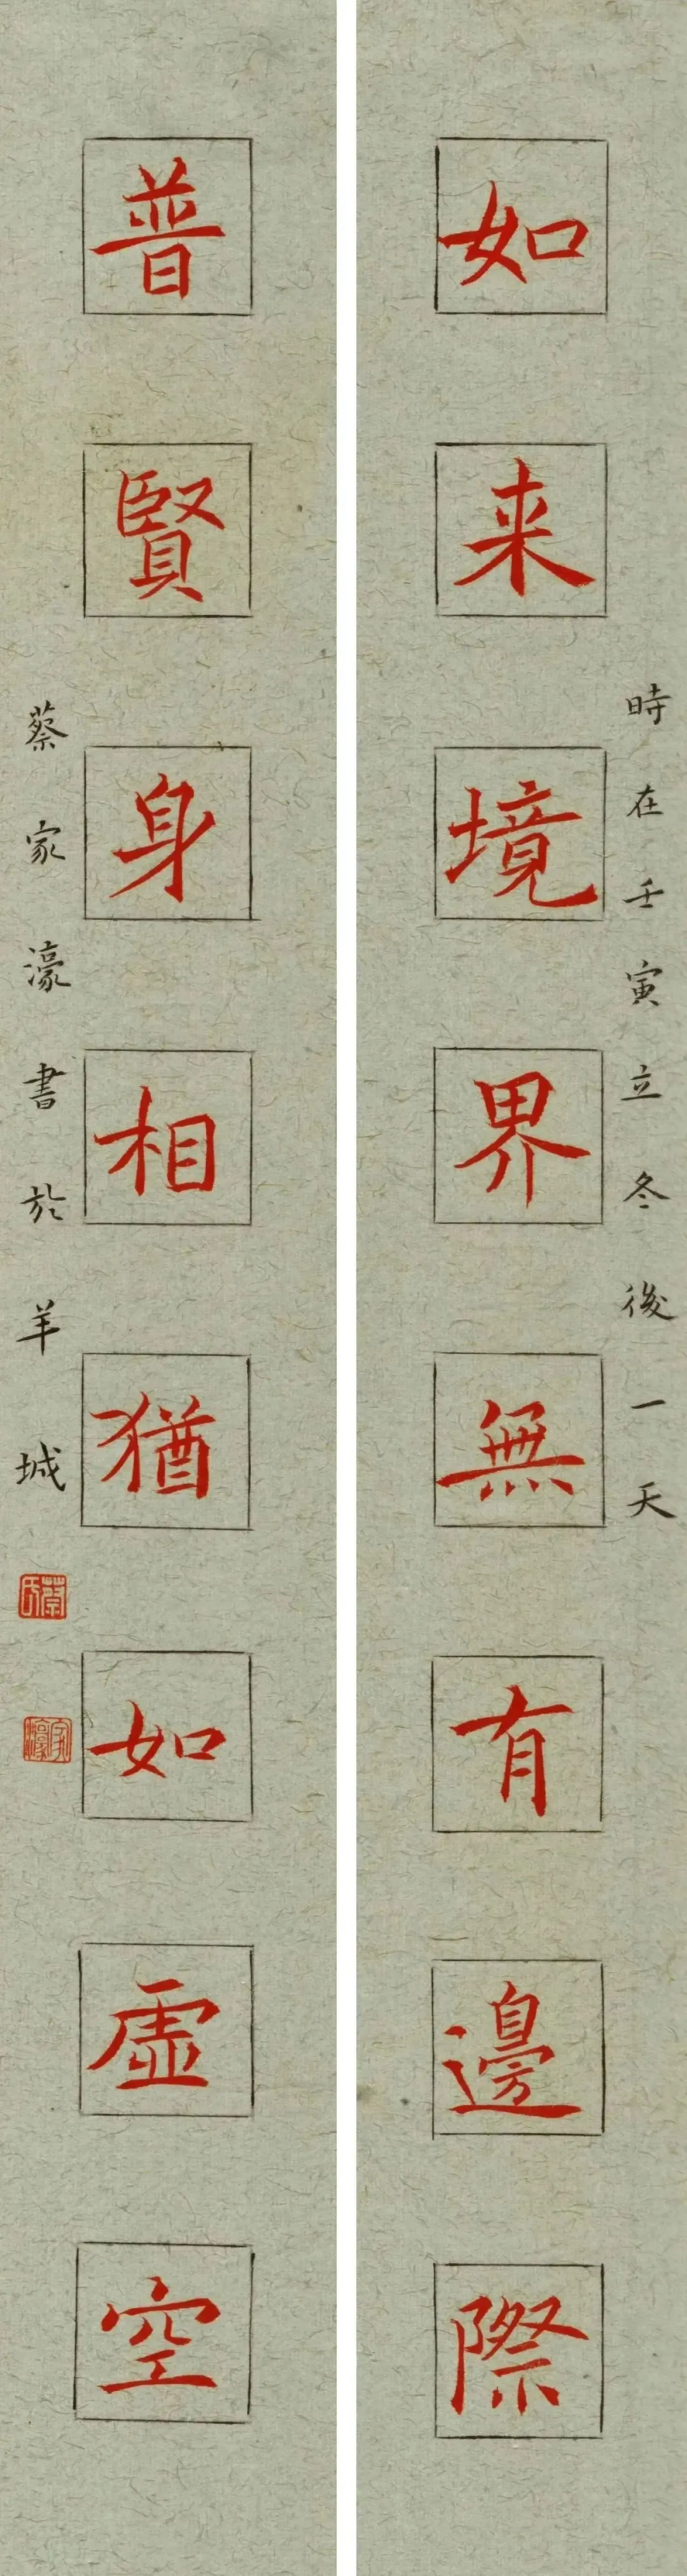 時在壬寅立冬後一天
如来境界無有邊際
普賢身相猶如虛空
蔡家濠書於羊城
蔡氏
家濠